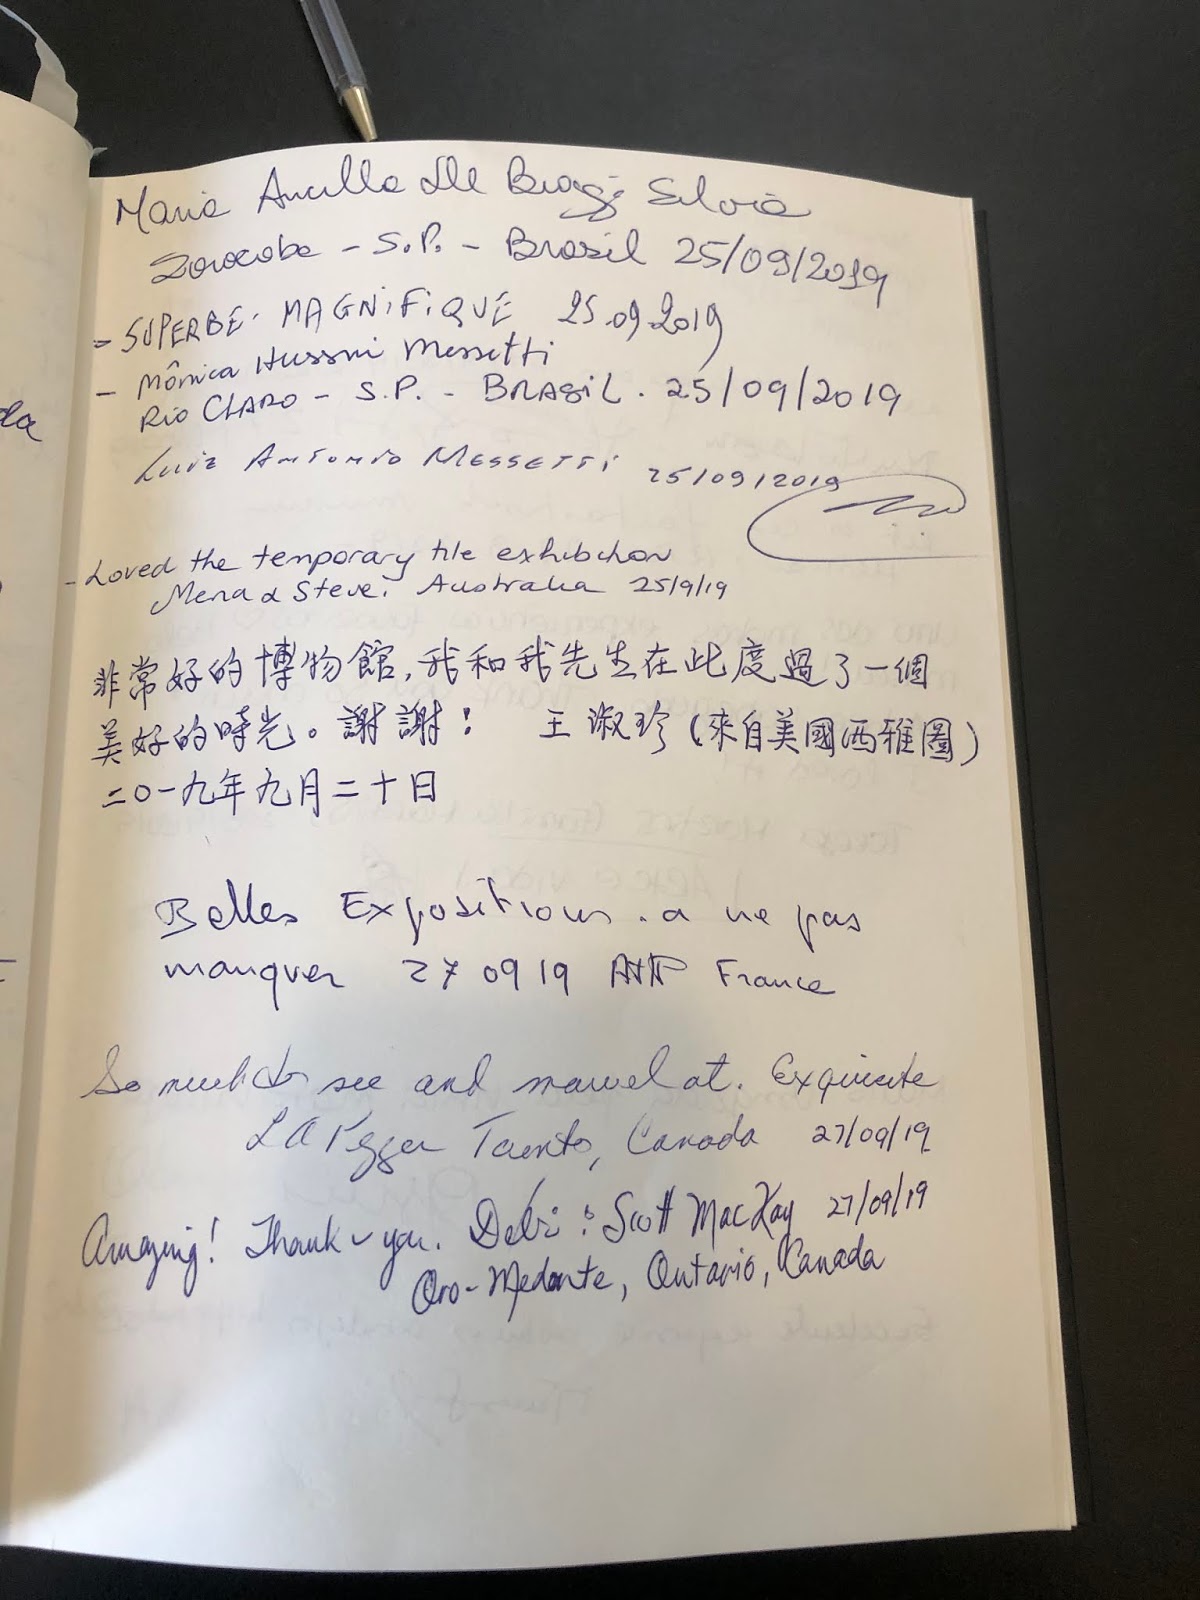 Maria Ancilla De Biagi Silvia
Sorocaba - S.P. - Brasil 25/09/2019
- SUPERBE. MAGNIFIQUE 25.09.2019
- Mônica Hussni Messetti
RIO CLARO - S.P. - BRASIL. 25/09/2019
Luiz Antonio Messetti 25/09/2019
- Loved the temporary tile exhibition
Mena & Steve. Australia 25/9/19
非常好的博物館,我和我先生在此度過了一個
美好的時光。謝謝! 王淑珍 (來自美國西雅圖)
二〇一九年九月二十日
Belles Expositions. a ne pas
manquer 27 09 19 France
So much to see and marvel at. Exquisite
Toronto, Canada 27/09/19
Amazing! Thank-you. Debi & Scott MacKay 27/09/19
Oro-Medonte, Ontario, Canada